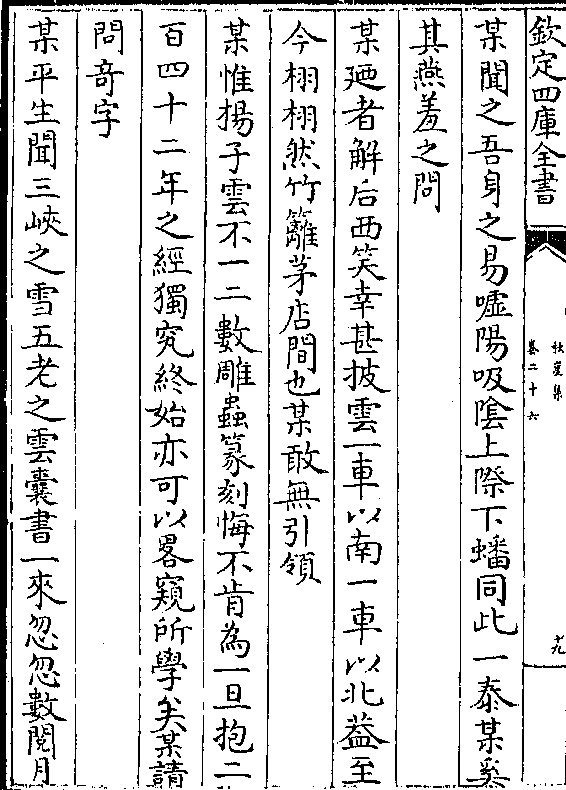 欽定四庫全書
秋崖集
卷二十六
十九
某聞之吾身之易噓陽吸陰上際下蟠同此一泰某奚
其燕羞之問
某廼者解后西笑幸甚披雲一車以南一車以北益至
今栩栩然竹籬茅店間也某敢無引領
某惟揚子雲不一二數雕蟲篆刻悔不肯為一旦抱二
百四十二年之經獨究終始亦可以畧窺所學矣某請
問竒字
某平生聞三峽之雪五老之雲囊書一來忽忽數閱月